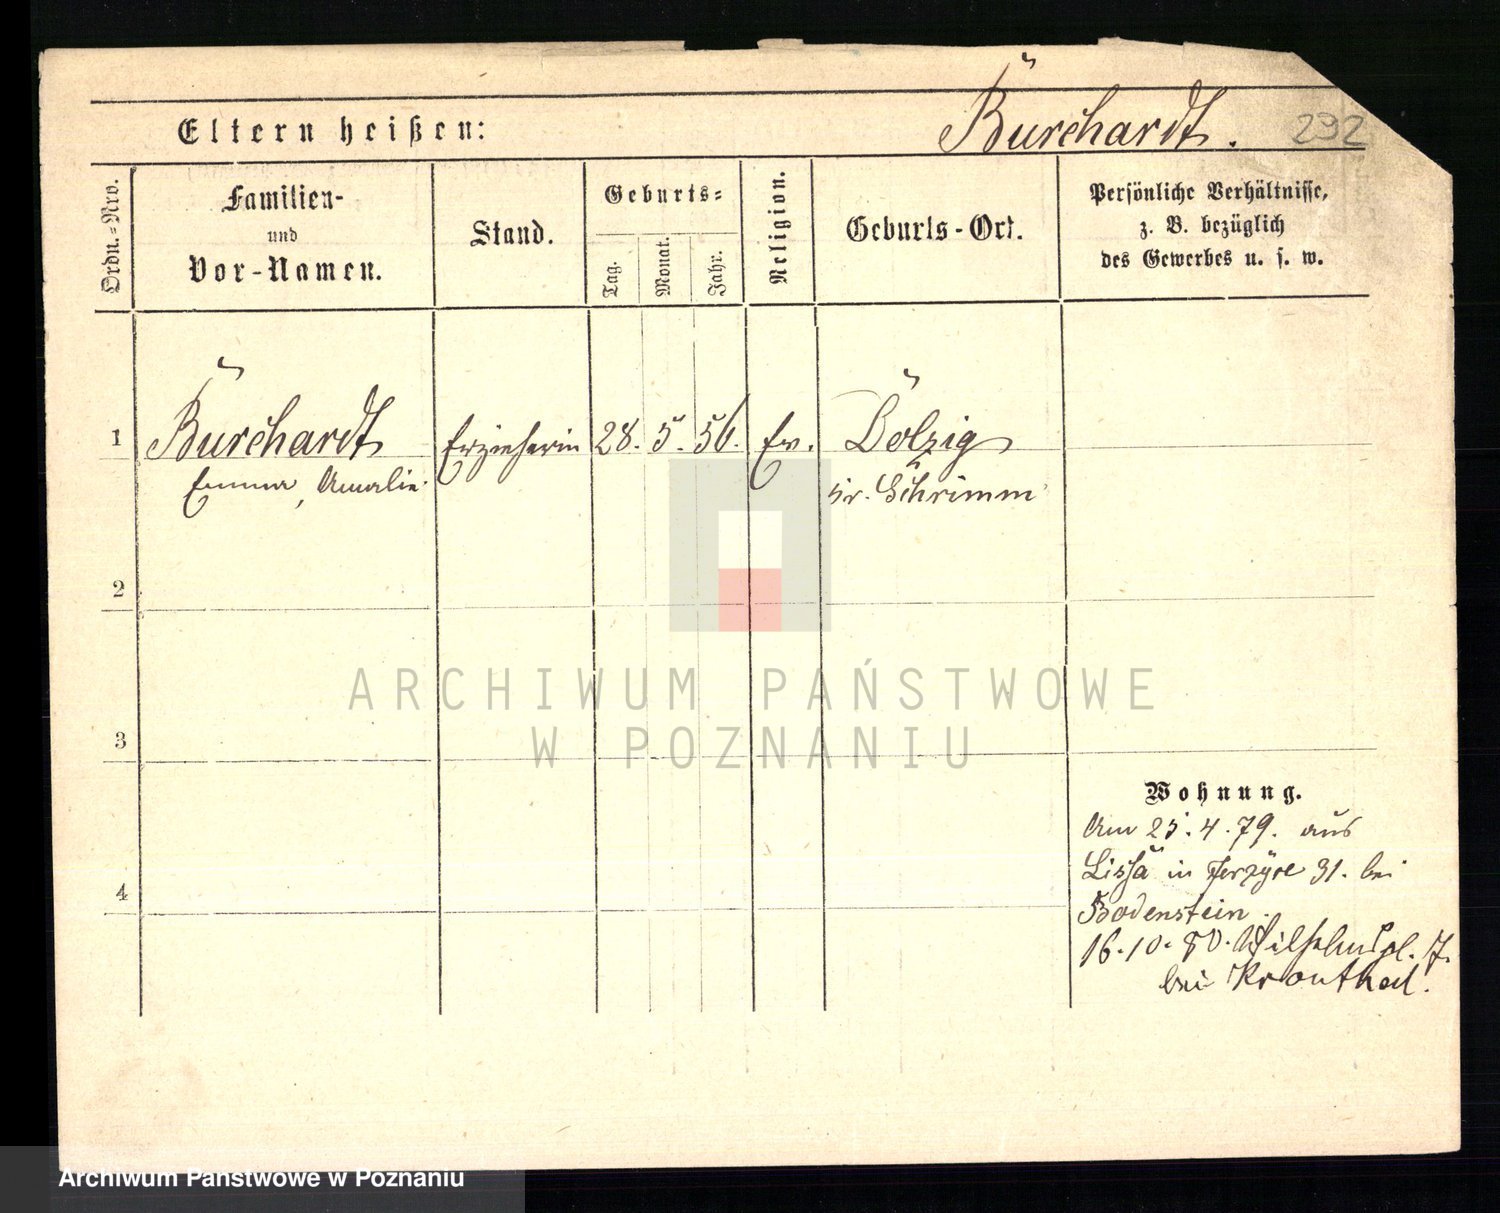 Burchardt. 292
Eltern heißen:
Ordn.-Nro.
Familien-
und
Vor-Namen.
Stand.
Geburts-
Tag.
Monat.
Jahr.
Religion.
Geburts-Ort.
Persönliche Verhältnisse,
z. B. bezüglich
des Gewerbes u. s. w.
1 Burchardt Erzieherin 28. 5. 56. Ev. Dolzig
Emma, Amalie Kr. Schrimm
2
3
4
Wohnung.
Am 25. 4. 79. aus
Lissa in Jerzyce 31. bei
Bodenstein.
16. 10. 80. Wilhelmspl. 7.
bei Kronthal.
ARCHIWUM PAŃSTWOWE
W POZNANIU
Archiwum Państwowe w Poznaniu